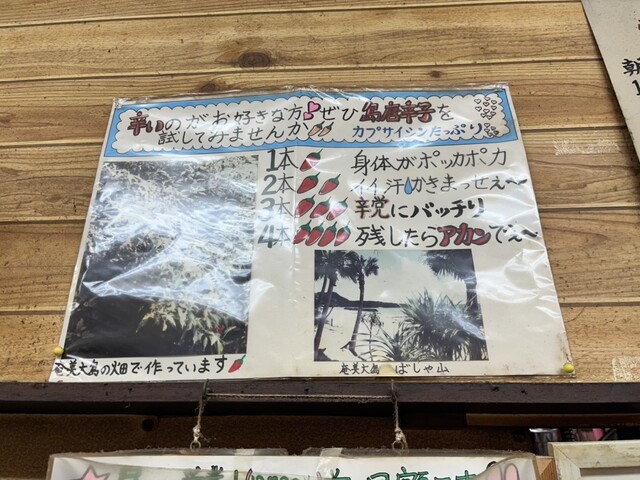 辛いのがお好きな方ぜひ島唐辛子を
試してみませんか カプサイシンたっぷり
1本 身体がポッカポカ
2本 イイ汗かきまっせぇ〜
3本 辛党にバッチリ
4本 残したらアカンでぇ〜
奄美大島の畑で作っています
奄美大島 ばしゃ山
朝